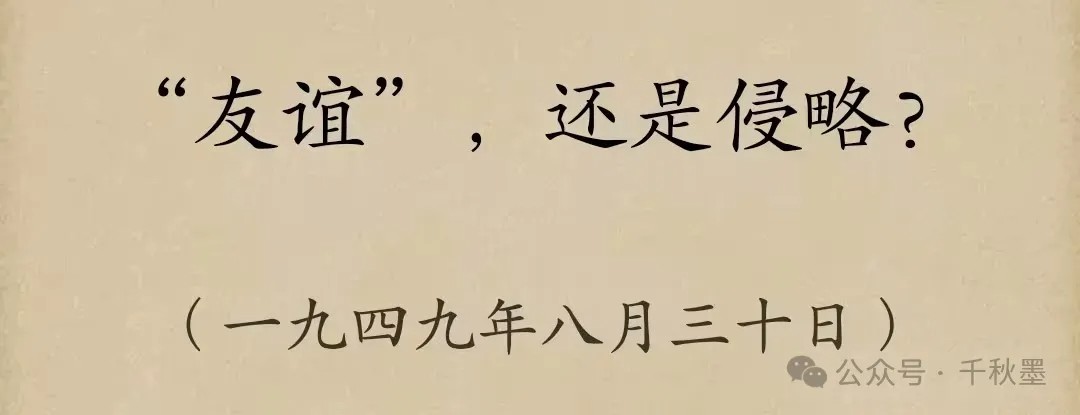 “友谊”，还是侵略？
（一九四九年八月三十日）
公众号·千秋墨